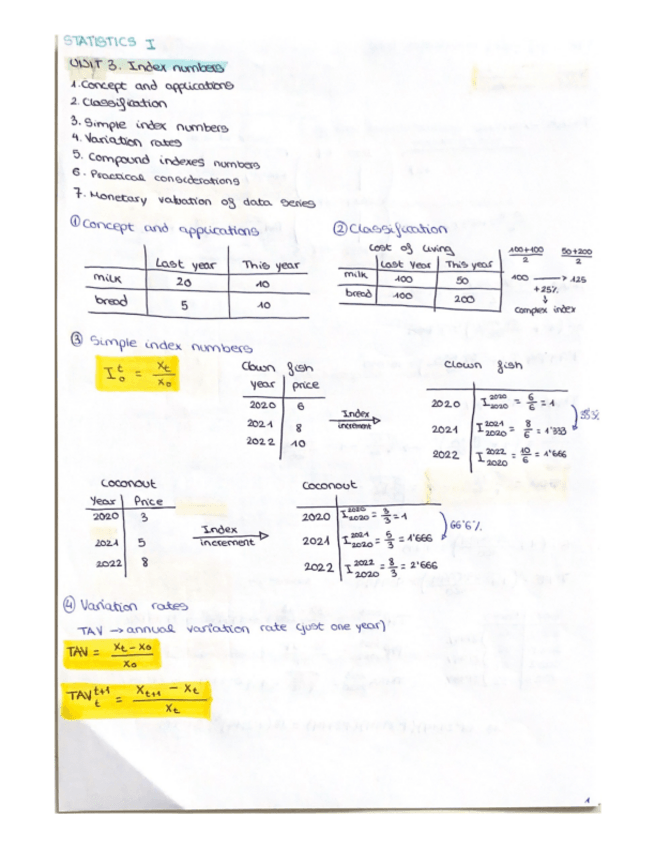 STATISTICS I
UNIT 3. Index numbers
1. Concept and applications
2. Classification
3. Simple index numbers
4. Variation rates
5. Compound indexes numbers
6. Practical considerations
7. Monetary valuation of data series
① Concept and applications
Last year This year
milk 20 10
bread 5 10
② Classification
Cost of living
Last Year This year
milk 100 50
bread 100 200
100+100/2 50+200/2
100 → 125
+25%
↓
complex index
③ Simple index numbers
I₀ᵗ = Xt/X0
Clown fish
year price
2020 6
2021 8
2022 10
Index
increment
Clown fish
2020 I²⁰²⁰₂₀₂₀ = 6/6 = 1
2021 I²⁰²¹₂₀₂₀ = 8/6 = 1'333
2022 I²⁰²²₂₀₂₀ = 10/6 = 1'666
Coconout
Year Price
2020 3
2021 5
2022 8
Index
increment
Coconout
2020 I²⁰²⁰₂₀₂₀ = 3/3 = 1
2021 I²⁰²¹₂₀₂₀ = 5/3 = 1'666
66'6%
2022 I²⁰²²₂₀₂₀ = 8/3 = 2'666
④ Variation rates
TAV → annual variation rate (just one year)
TAV = Xt - X0/X0
TAVₜᵗ⁺¹ = Xt+1 - Xt/Xt
1